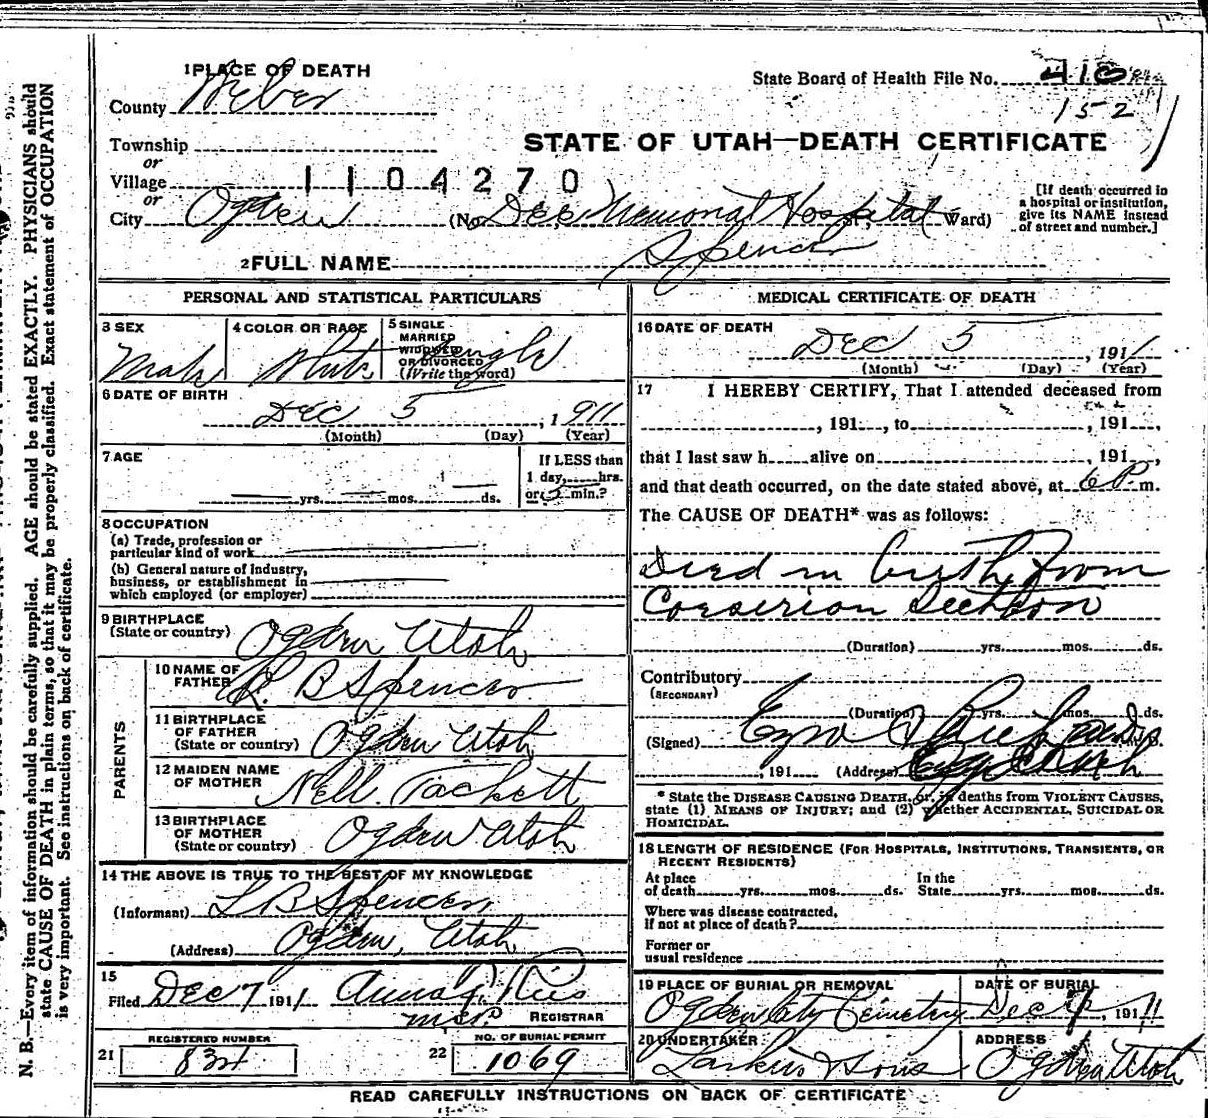 1 PLACE OF DEATH
County Weber
State Board of Health File No. 410
152
Township
or
Village
1104270
or
City Ogden (No. Dee Memorial Hospital St. Ward)
STATE OF UTAH—DEATH CERTIFICATE
[If death occurred in
a hospital or institution,
give its NAME instead
of street and number.]
2 FULL NAME Spencer
PERSONAL AND STATISTICAL PARTICULARS
3 SEX
Male
4 COLOR OR RACE
White
5 SINGLE
MARRIED
WIDOWED
OR DIVORCED
(Write the word)
Single
6 DATE OF BIRTH
Dec 5, 1911
(Month) (Day) (Year)
7 AGE
yrs. mos. ds.
If LESS than
1 day, hrs.
or 5 min.?
8 OCCUPATION
(a) Trade, profession or
particular kind of work
(b) General nature of Industry,
business, or establishment in
which employed (or employer)
9 BIRTHPLACE
(State or country) Ogden Utah
PARENTS
10 NAME OF
FATHER L. B Spencer
11 BIRTHPLACE
OF FATHER
(State or country) Ogden Utah
12 MAIDEN NAME
OF MOTHER Nell. Tackett
13 BIRTHPLACE
OF MOTHER
(State or country) Ogden Utah
14 THE ABOVE IS TRUE TO THE BEST OF MY KNOWLEDGE
(Informant) L B Spencer
(Address) Ogden, Utah
15
Filed Dec 7 1911
REGISTRAR
REGISTERED NUMBER
21 834
NO. OF BURIAL PERMIT
22 1069
MEDICAL CERTIFICATE OF DEATH
16 DATE OF DEATH
Dec 5, 1911
(Month) (Day) (Year)
17 I HEREBY CERTIFY, That I attended deceased from
, 191 , to , 191 ,
that I last saw h alive on , 191 ,
and that death occurred, on the date stated above, at 6 P. m.
The CAUSE OF DEATH* was as follows:
Died in birth from
Coeserion Section
(Duration) yrs. mos. ds.
Contributory
(SECONDARY)
(Duration) yrs. mos. ds.
(Signed) Ezra
, 191 (Address)
* State the DISEASE CAUSING DEATH, or, in deaths from VIOLENT CAUSES,
state (1) MEANS OF INJURY; and (2) whether ACCIDENTAL, SUICIDAL OR
HOMICIDAL.
18 LENGTH OF RESIDENCE (FOR HOSPITALS, INSTITUTIONS, TRANSIENTS, OR
RECENT RESIDENTS)
At place
of death yrs. mos. ds.
In the
State yrs. mos. ds.
Where was disease contracted,
if not at place of death?
Former or
usual residence
19 PLACE OF BURIAL OR REMOVAL
Ogden City Cemetery
DATE OF BURIAL
Dec 1911
20 UNDERTAKER
Larkin & Sons
ADDRESS
Ogden Utah
READ CAREFULLY INSTRUCTIONS ON BACK OF CERTIFICATE
N. B.—Every item of information should be carefully supplied. AGE should be stated EXACTLY. PHYSICIANS should
state CAUSE OF DEATH in plain terms, so that it may be properly classified. Exact statement of OCCUPATION
is very important. See instructions on back of certificate.